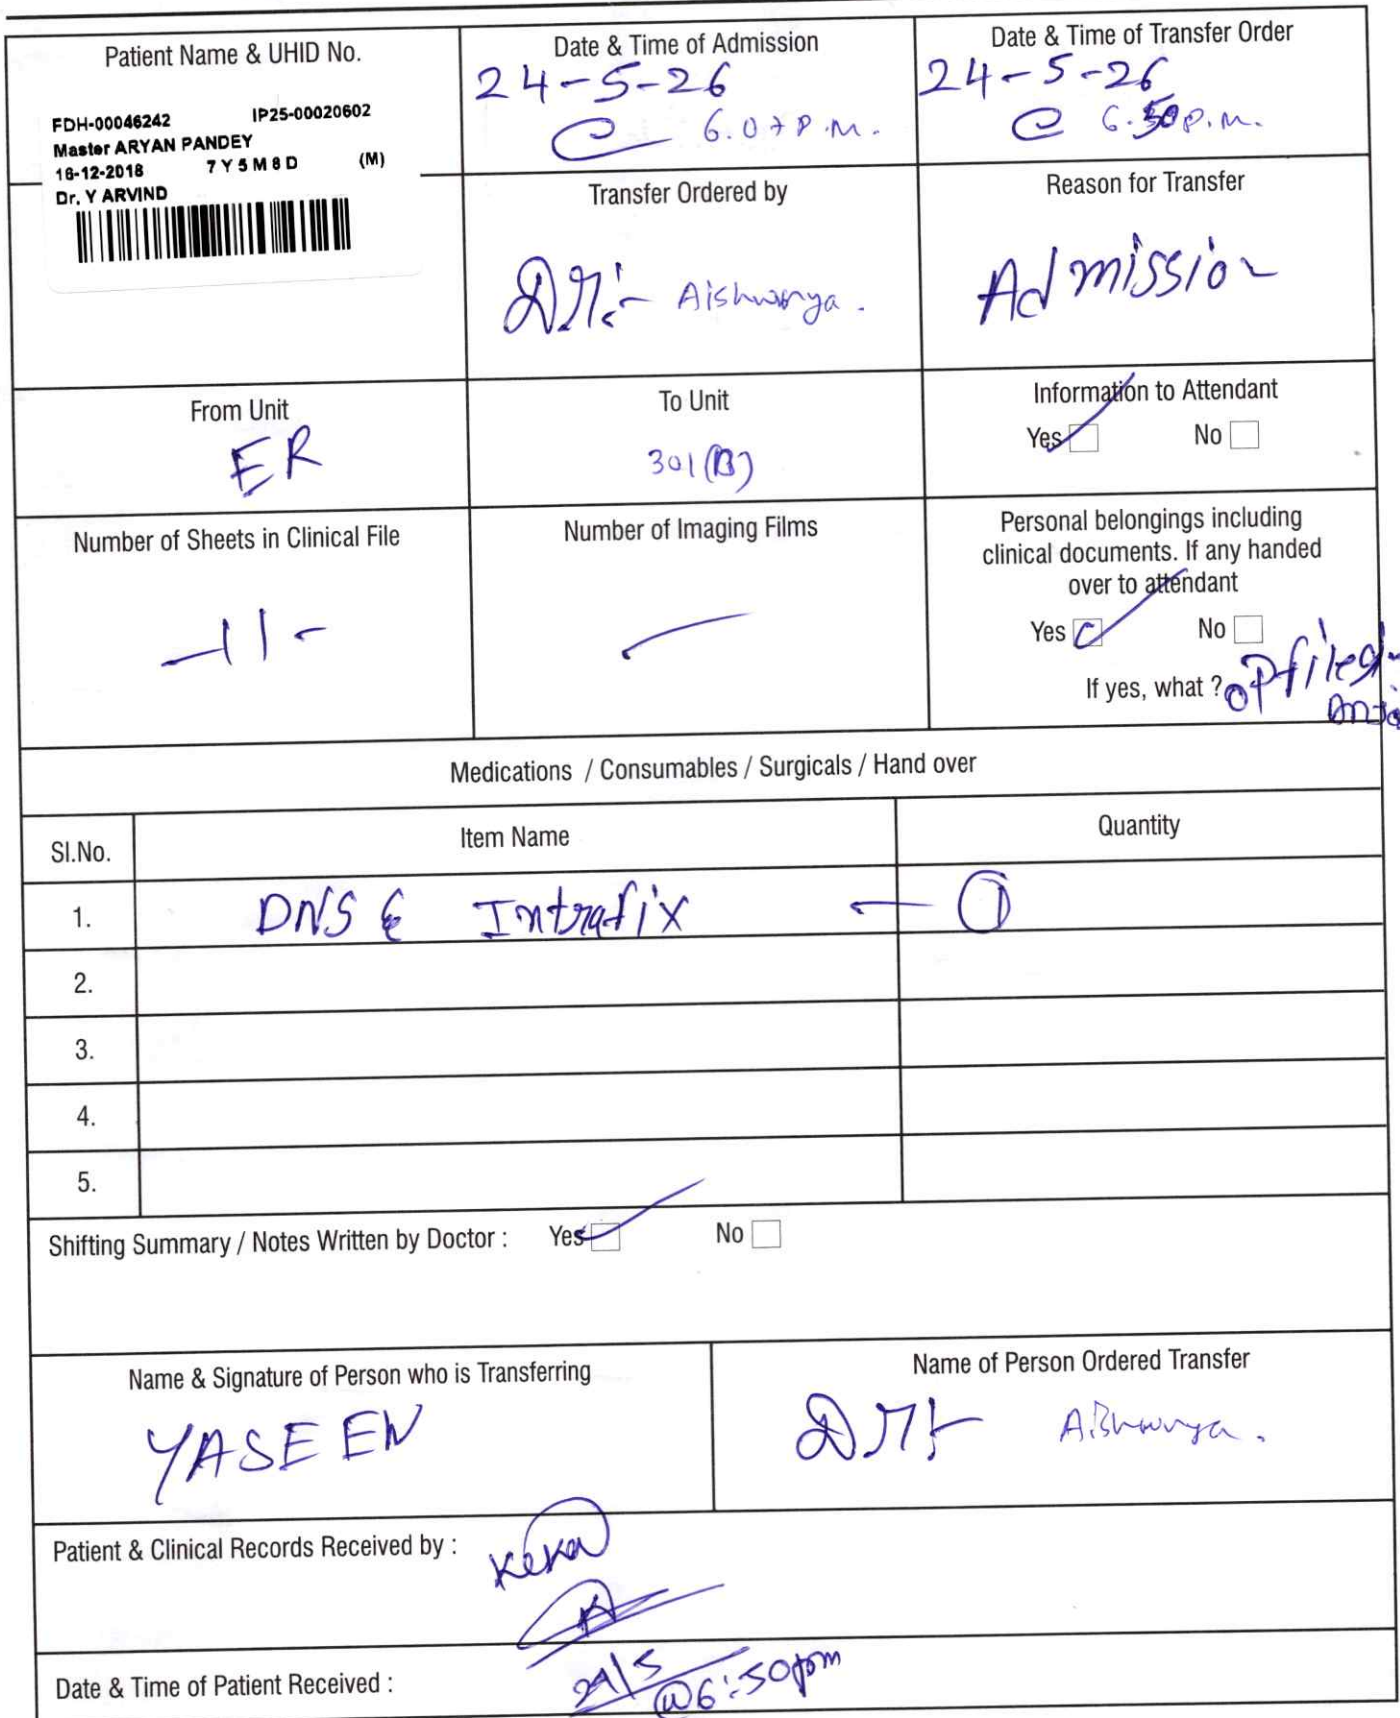 Patient Name & UHID No.
FDH-00046242 IP25-00020602
Master ARYAN PANDEY
16-12-2018 7 Y 5 M 8 D (M)
Dr. Y ARVIND
Date & Time of Admission
24-5-26
@ 6.07 P.M.
Date & Time of Transfer Order
24-5-26
@ 6.50 P.m.
Transfer Ordered by
Dr:- Aishwarya.
Reason for Transfer
Admission
From Unit
ER
To Unit
301(B)
Information to Attendant
Yes No
Number of Sheets in Clinical File
-11-
Number of Imaging Films
Personal belongings including
clinical documents. If any handed
over to attendant
Yes No
If yes, what ? OP file
Medications / Consumables / Surgicals / Hand over
Sl.No. Item Name Quantity
1. DNS & Intrafix - 1
2.
3.
4.
5.
Shifting Summary / Notes Written by Doctor : Yes No
Name & Signature of Person who is Transferring
YASEEN
Name of Person Ordered Transfer
Dr:- Aishwarya.
Patient & Clinical Records Received by :
Date & Time of Patient Received : 24/5
@6:50pm